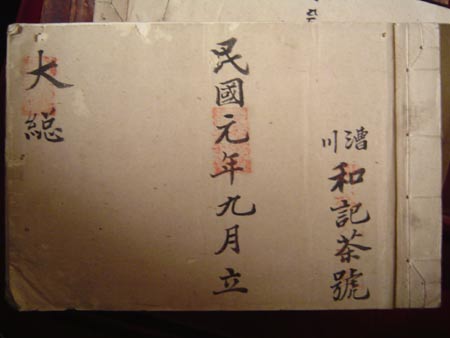 漕川
和記茶號
民國元年九月立
大総